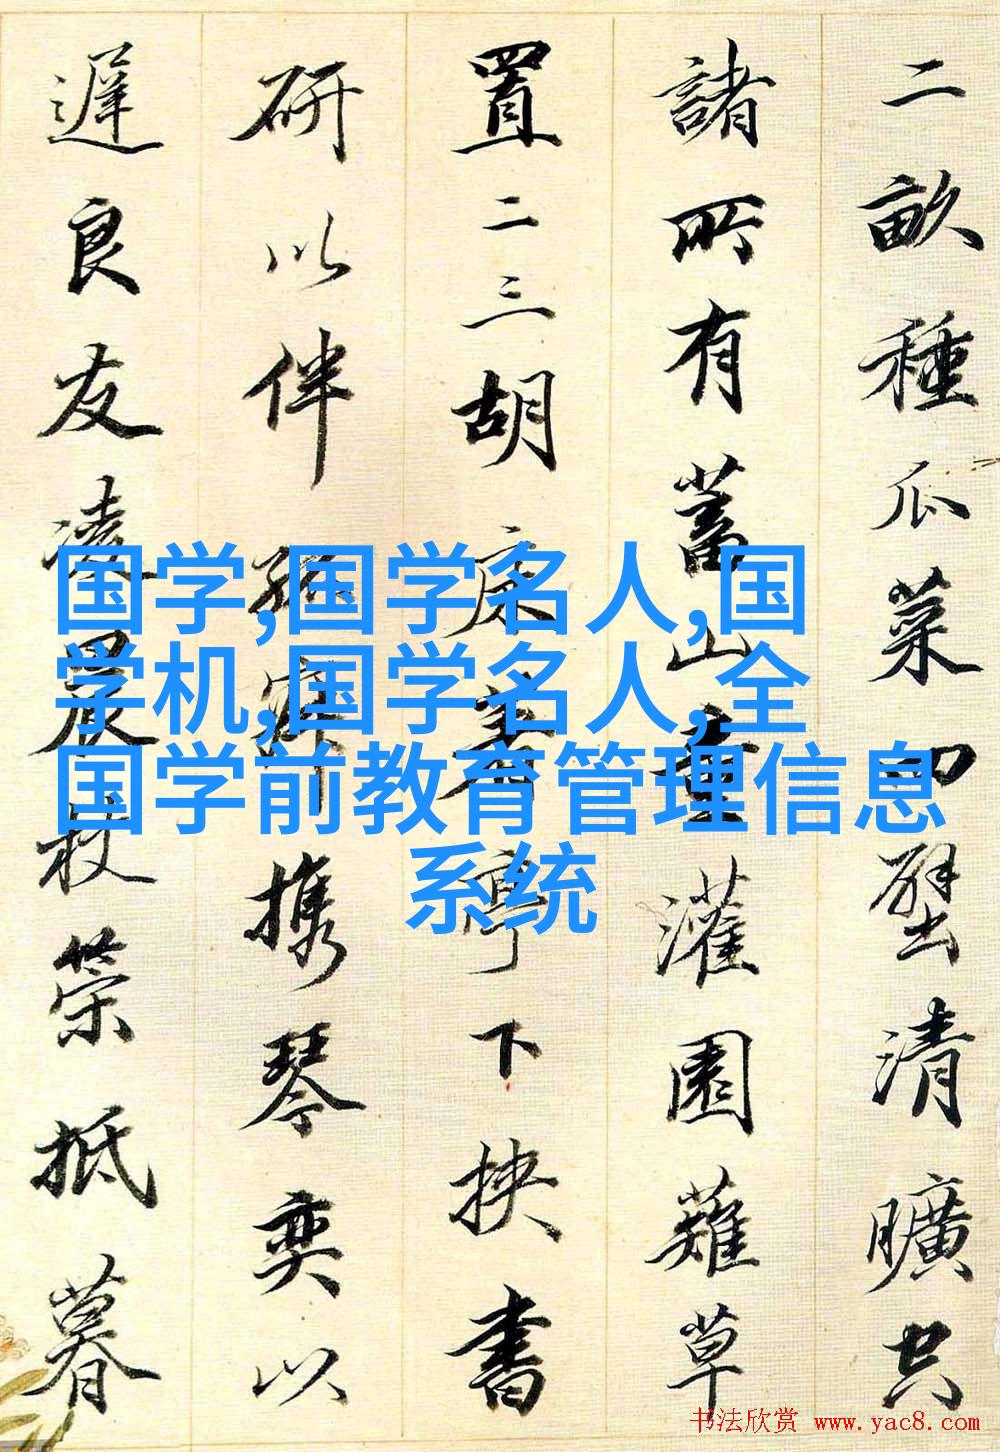 二畝種瓜菜四壁清曠空
諸所有蓄山童灌園薙草
置二三胡床著亭下挾書
研以伴孤寂携琴奕以
遲良友凌晨杖策抵暮
国学,国学名人,国
学机,国学名人,全
国学前教育管理信息
系统
书法欣赏 www.yac8.com